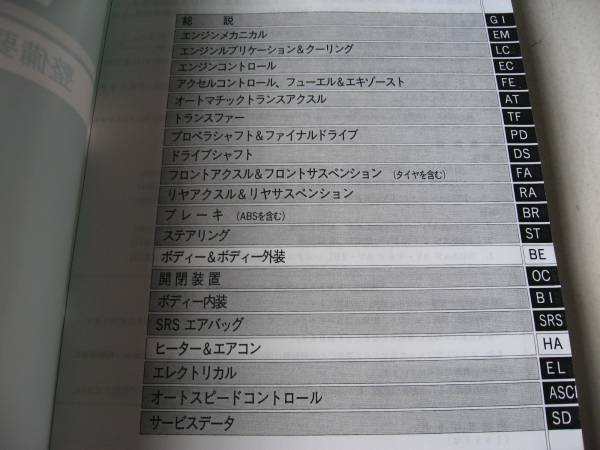 総 説 GI
エンジンメカニカル EM
エンジンルブリケーション&クーリング LC
エンジンコントロール EC
アクセルコントロール、フューエル&エキゾースト FE
オートマチックトランスアクスル AT
トランスファー TF
プロペラシャフト&ファイナルドライブ PD
ドライブシャフト DS
フロントアクスル&フロントサスペンション (タイヤを含む) FA
リヤアクスル&リヤサスペンション RA
ブレーキ (ABSを含む) BR
ステアリング ST
ボディー&ボディー外装 BE
開閉装置 OC
ボディー内装 BI
SRS エアバッグ SRS
ヒーター&エアコン HA
エレクトリカル EL
オートスピードコントロール ASCD
サービスデータ SD